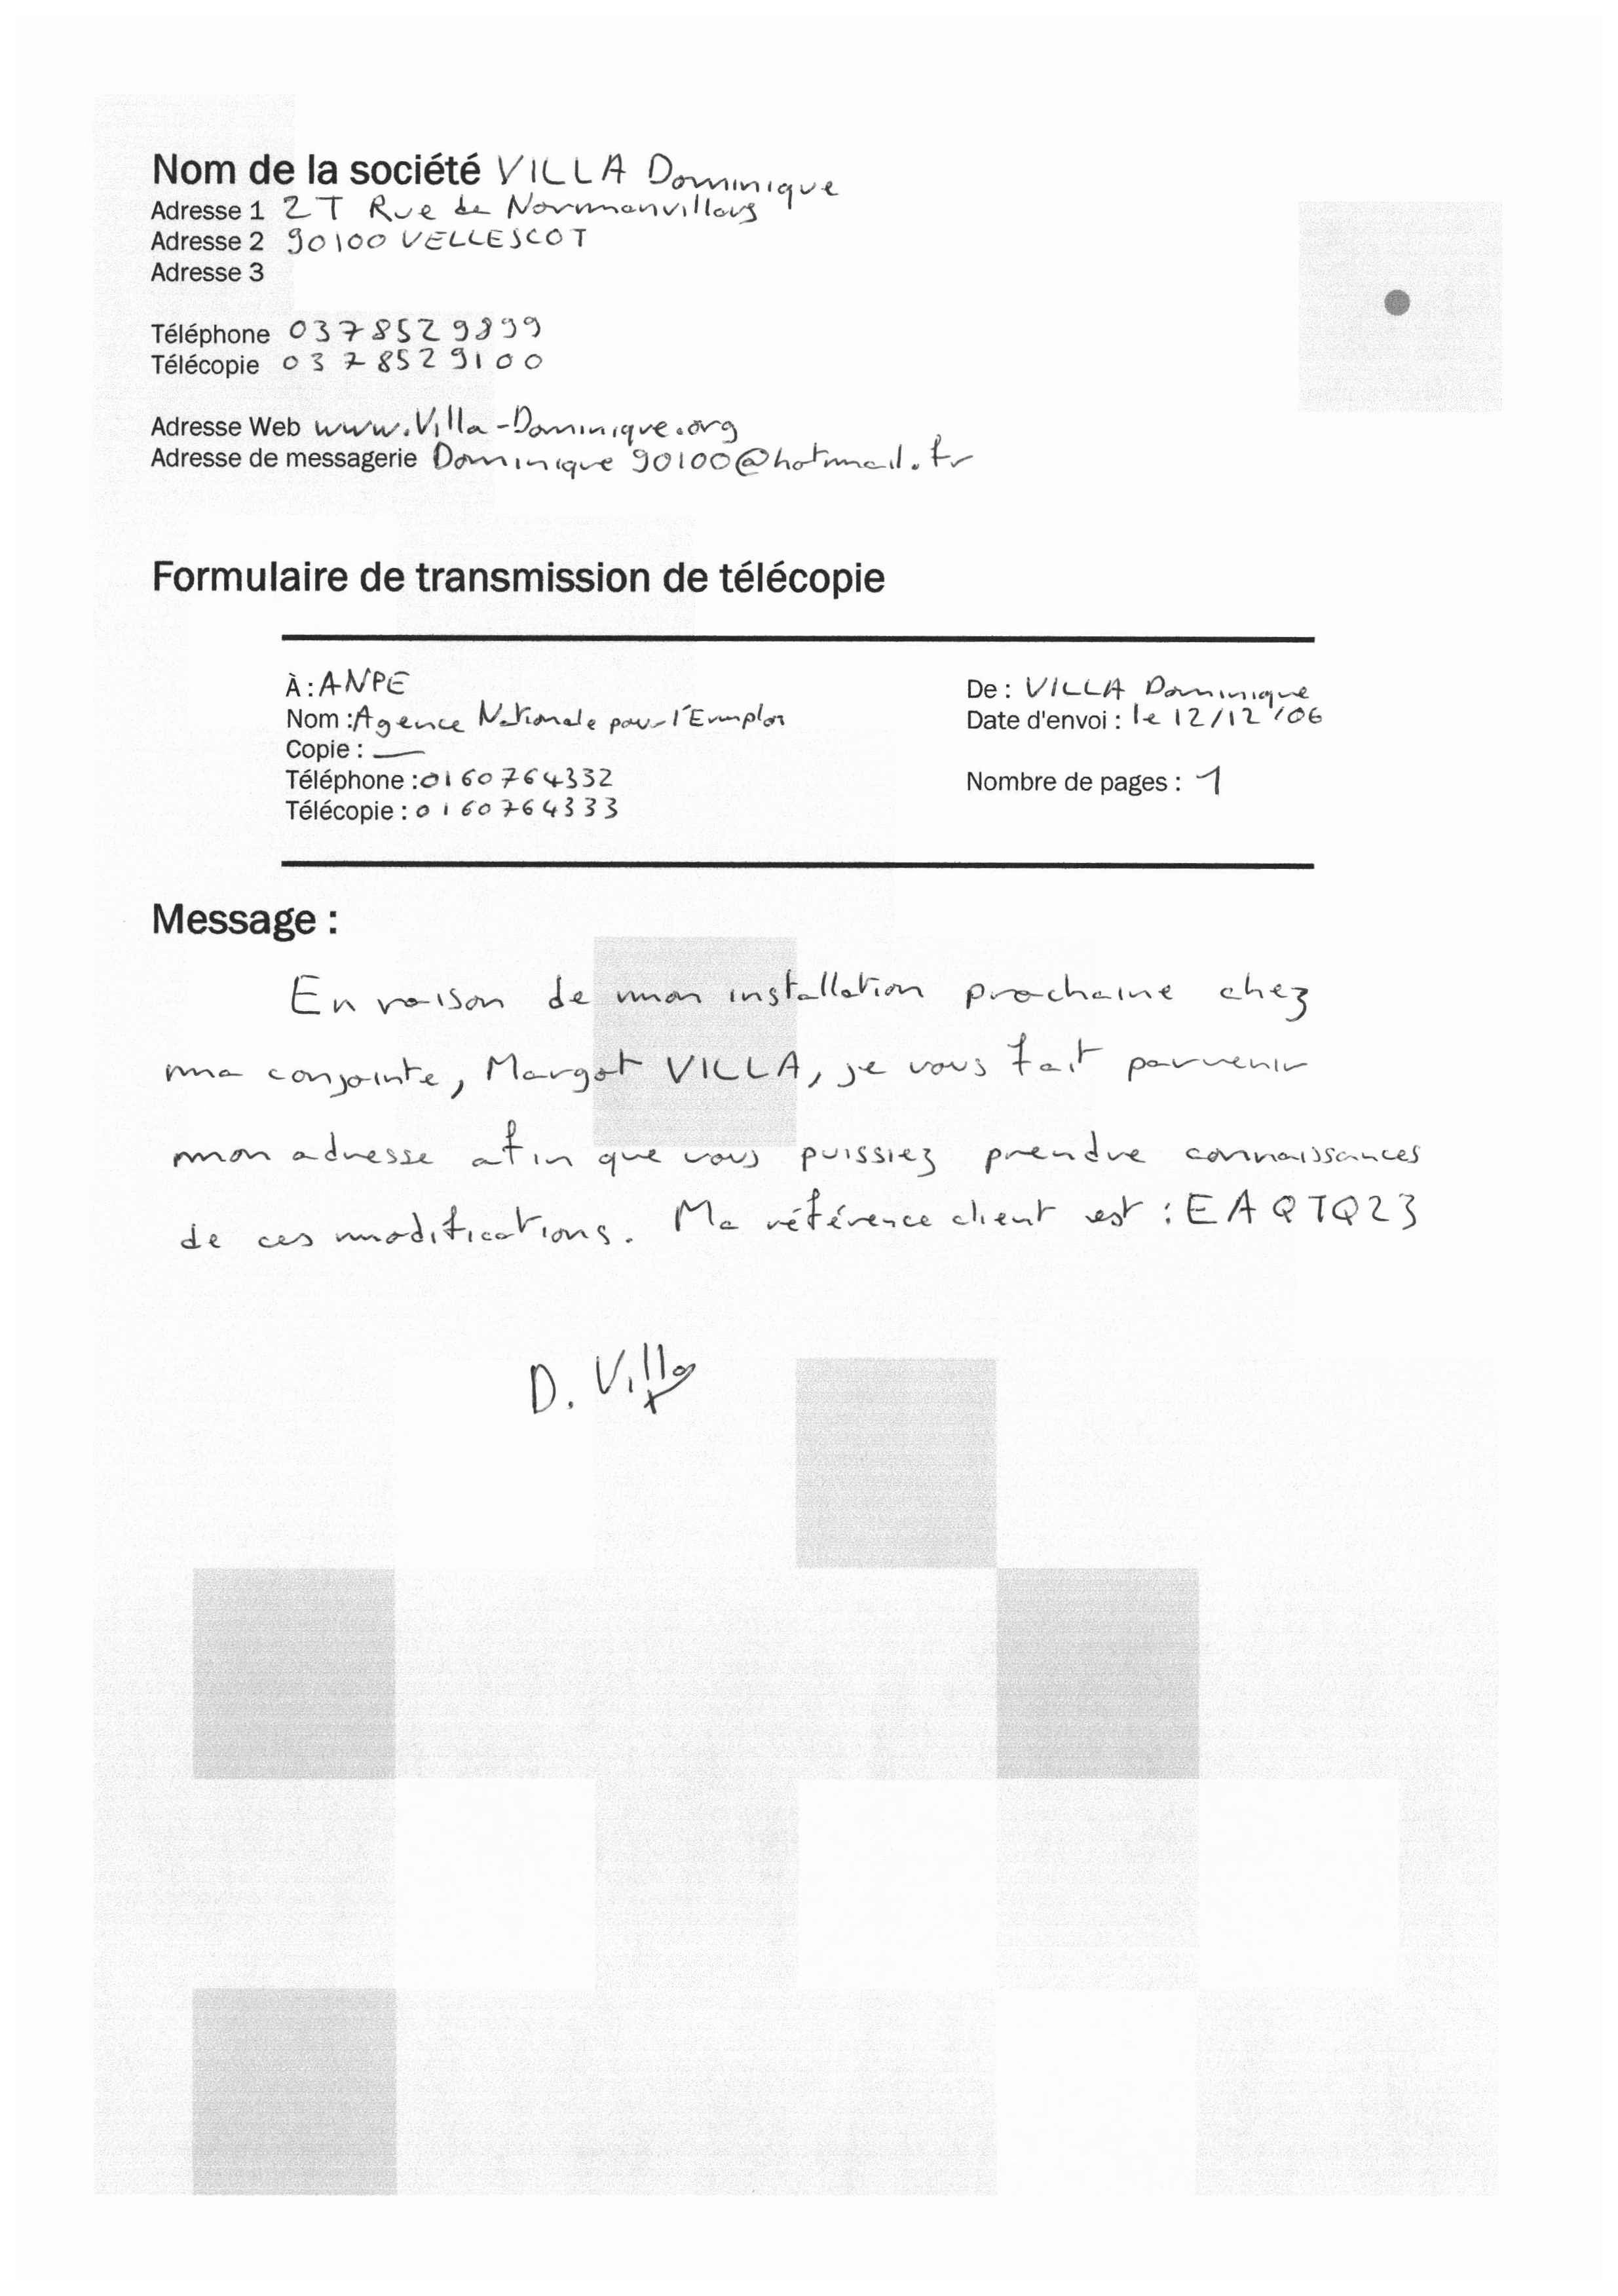 Nom de la société VILLA Dominique
Adresse 1 2T Rue de Normanvillars
Adresse 2 90100 VELLESCOT
Adresse 3
Téléphone 0378529899
Télécopie 0378529100
Adresse Web www.Villa-Dominique.org
Adresse de messagerie Dominique90100@hotmail.fr
Formulaire de transmission de télécopie
À : ANPE
De : VILLA Dominique
Nom : Agence Nationale pour l'Emploi
Date d'envoi : le 12/12/06
Copie : —
Téléphone : 0160764332
Nombre de pages : 1
Télécopie : 0160764333
Message :
En raison de mon installation prochaine chez
ma conjointe, Margot VILLA, je vous fait parvenir
mon adresse afin que vous puissiez prendre connaissances
de ces modifications. Ma référence client est : EAQTQ23
D. Villa